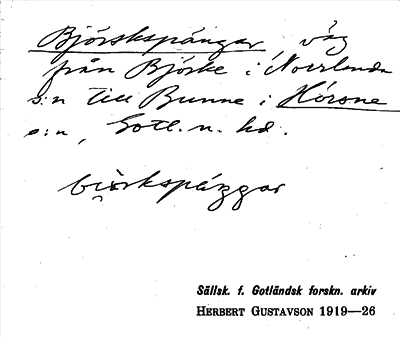 Björkspängar, väg
från Björke i Norrlanda
s:n till Bunne i Hörsne
s:n, Gotl. n. hd.
biörkspäŋgar
Sällsk. f. Gotländsk forskn. arkiv
HERBERT GUSTAVSON 1919—26